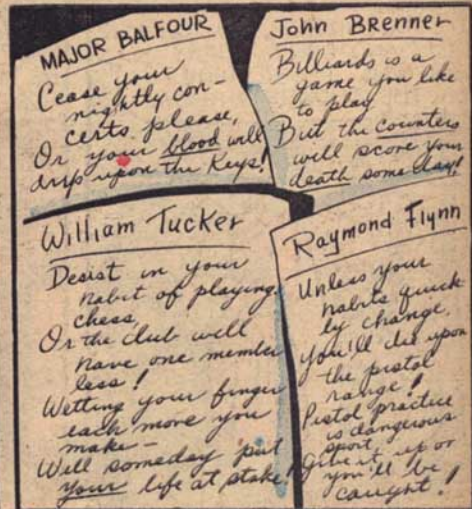 MAJOR BALFOUR
Cease your
nightly con-
certs please,
Or your blood will
drip upon the Keys!
John Brenner
Billiards is a
game you like
to play
But the counters
will score your
death some day!
William Tucker
Desist in your
habit of playing
chess,
Or the club will
have one member
less!
Wetting your finger
each move you
make—
Will someday put
your life at stake!
Raymond Flynn
Unless your
habits quick
ly change,
You'll die upon
the pistol
range!
Pistol practice
is dangerous
sport,
Give it up or
you'll be
caught!